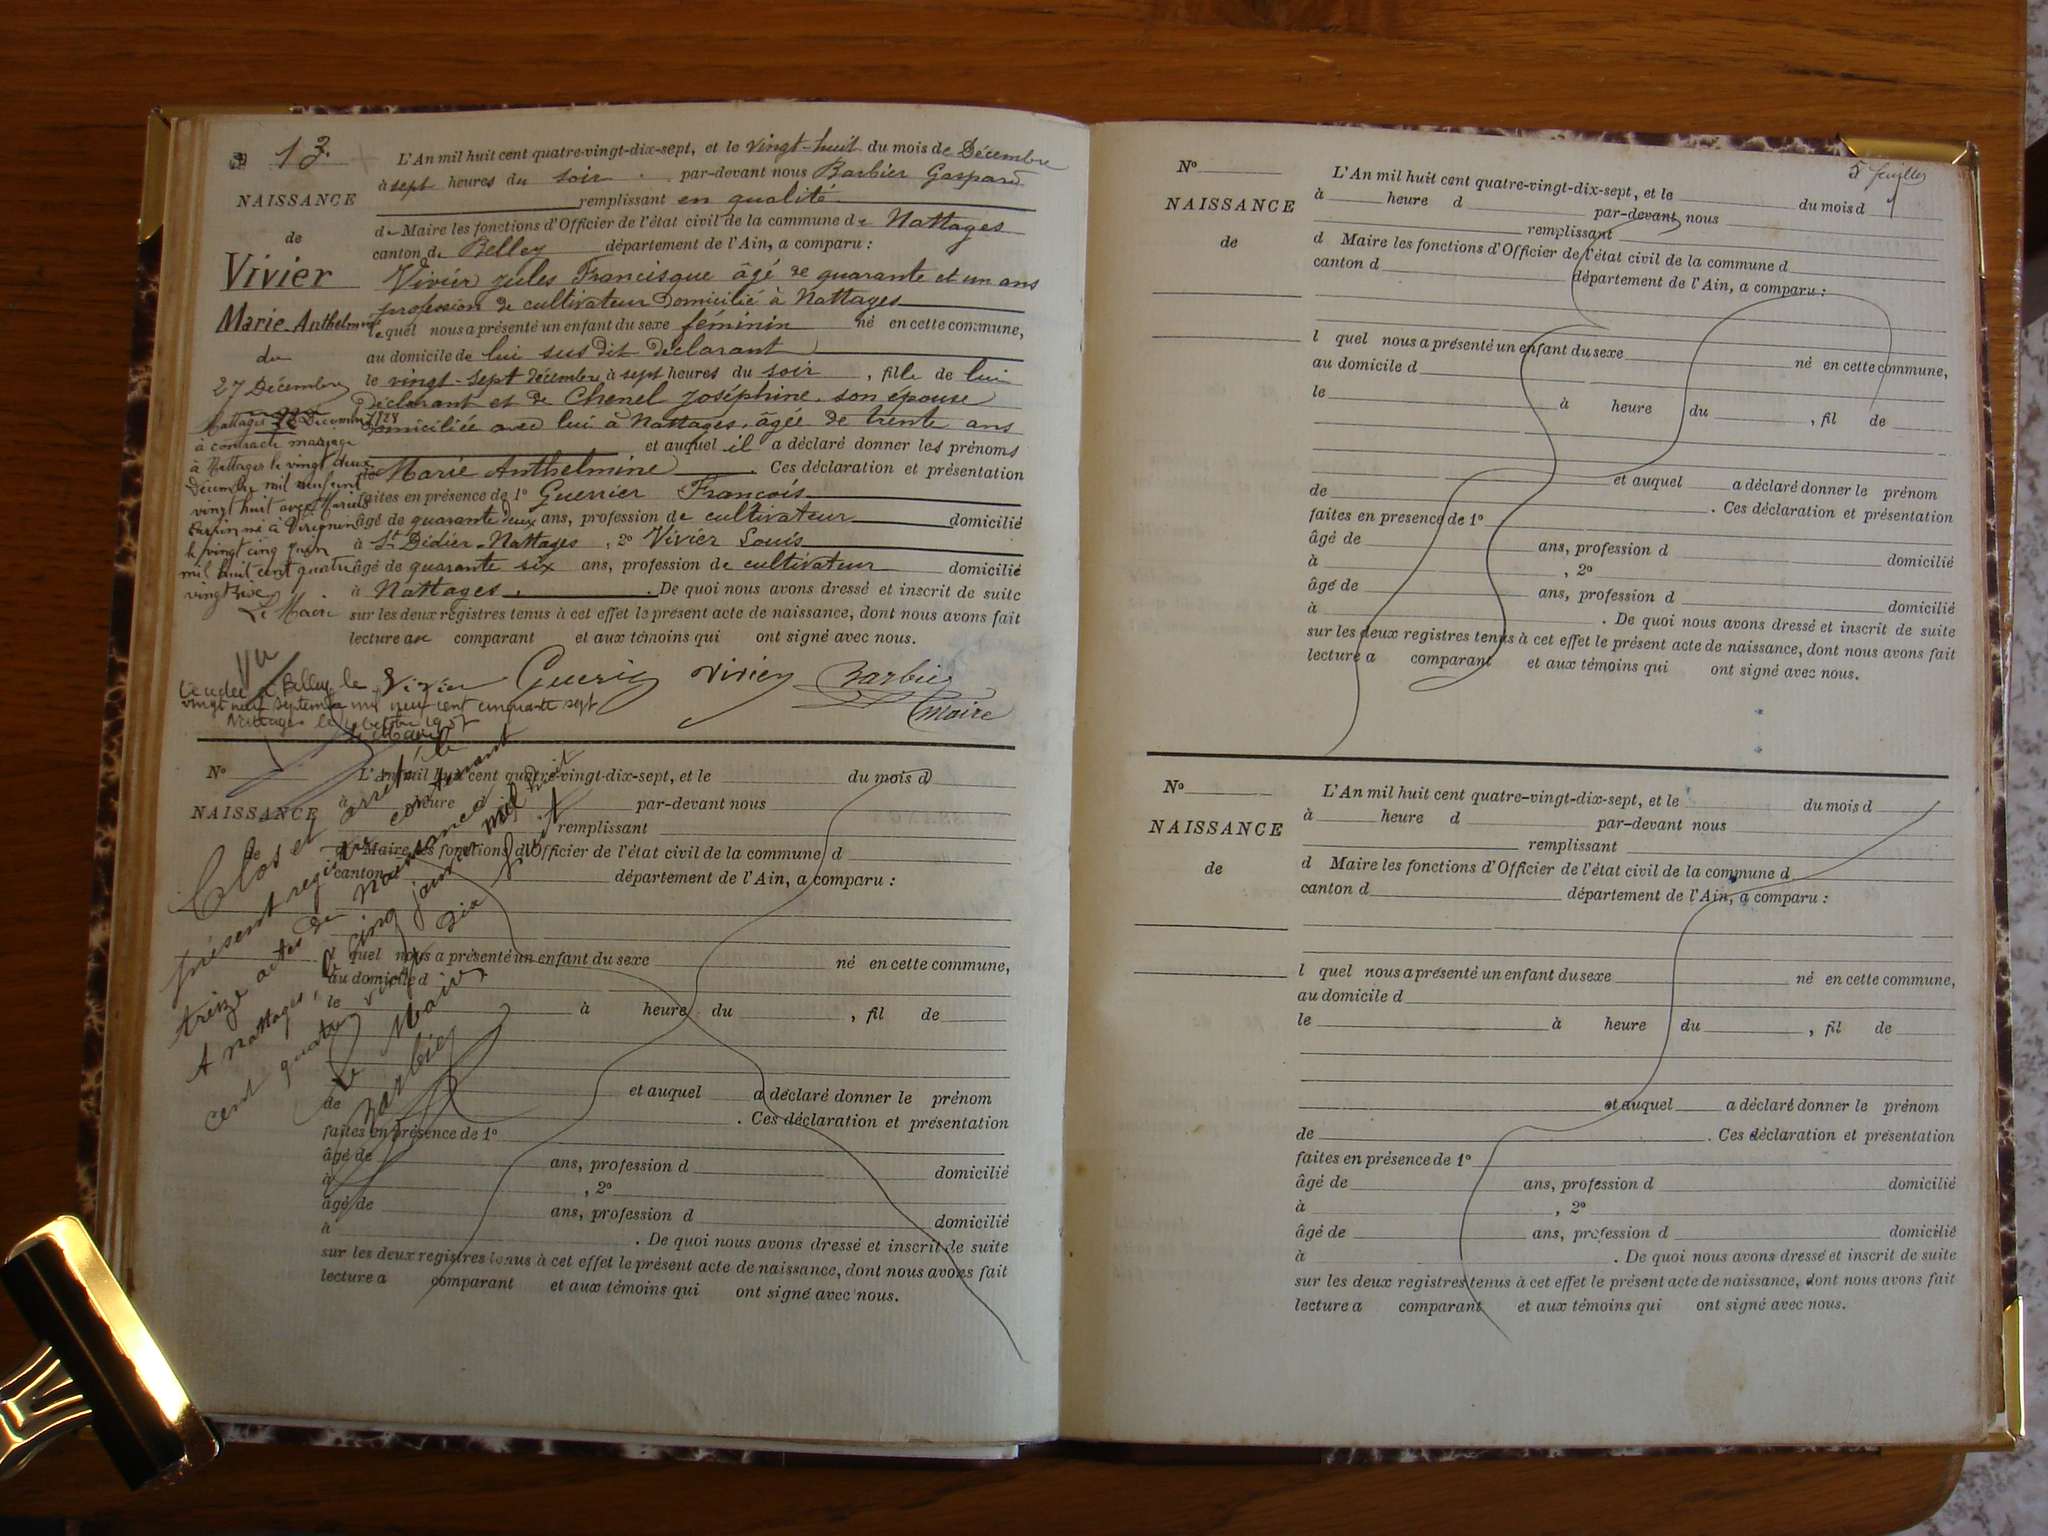 13.
NAISSANCE
de
Vivier
Marie Anthelmine
du
27 Décembre
L'An mil huit cent quatre-vingt-dix-sept, et le vingt-huit du mois de Décembre
à sept heures du soir par-devant nous Barbier Gaspard
remplissant en qualité
de Maire les fonctions d'Officier de l'état civil de la commune de Nattages
canton de Belley département de l'Ain, a comparu :
Vivier Jules Francisque âgé de quarante et un ans
profession de cultivateur domicilié à Nattages
lequel nous a présenté un enfant du sexe féminin né en cette commune,
au domicile de lui susdit déclarant
le vingt-sept décembre à sept heures du soir, fille de lui
déclarant et de Chenel Joséphine son épouse
domiciliée avec lui à Nattages, âgée de trente ans
et auquel il a déclaré donner les prénoms
de Marie Anthelmine. Ces déclaration et présentation
faites en présence de 1° Guerrier François
âgé de quarante deux ans, profession de cultivateur domicilié
à St Didier-Nattages, 2° Vivier Louis
âgé de quarante six ans, profession de cultivateur domicilié
à Nattages. De quoi nous avons dressé et inscrit de suite
sur les deux registres tenus à cet effet le présent acte de naissance, dont nous avons fait
lecture au comparant et aux témoins qui ont signé avec nous.
Nattages 22 Décembre 1928
à contracté mariage
à Nattages le vingt deux
Décembre mil neuf cent
vingt huit avec Marius
né à Virignin
le vingt cinq juin
mil huit cent quatre
vingt
Le Maire
Vivier Vivier Barbier
Maire
Belley le
vingt neuf septembre mil neuf cent cinquante sept
Nattages le octobre 1957
N°
NAISSANCE
de
L'An mil huit cent quatre-vingt-dix-sept, et le du mois d
à heure par-devant nous
remplissant
d Maire les fonctions d'Officier de l'état civil de la commune d
canton département de l'Ain, a comparu :
l quel nous a présenté un enfant du sexe né en cette commune,
au domicile d
le à heure du , fil de
et auquel a déclaré donner le prénom
de . Ces déclaration et présentation
faites en présence de 1°
âgé de ans, profession d domicilié
à , 2°
âgé de ans, profession d domicilié
à . De quoi nous avons dressé et inscrit de suite
sur les deux registres tenus à cet effet le présent acte de naissance, dont nous avons fait
lecture a comparant et aux témoins qui ont signé avec nous.
Clos et arrêté le
présent registre contenant
treize actes de naissance
A Nattages, le cinq janvier mil huit
cent quatre vingt dix huit
Le Maire
Barbier
5 feuilles
N°
NAISSANCE
de
L'An mil huit cent quatre-vingt-dix-sept, et le du mois d
à heure d par-devant nous
remplissant
d Maire les fonctions d'Officier de l'état civil de la commune d
canton d département de l'Ain, a comparu :
l quel nous a présenté un enfant du sexe né en cette commune,
au domicile d
le à heure du , fil de
et auquel a déclaré donner le prénom
de . Ces déclaration et présentation
faites en presence de 1°
âgé de ans, profession d domicilié
à , 2°
âgé de ans, profession d domicilié
à . De quoi nous avons dressé et inscrit de suite
sur les deux registres tenus à cet effet le présent acte de naissance, dont nous avons fait
lecture a comparant et aux témoins qui ont signé avec nous.
N°
NAISSANCE
de
L'An mil huit cent quatre-vingt-dix-sept, et le du mois d
à heure d par-devant nous
remplissant
d Maire les fonctions d'Officier de l'état civil de la commune d
canton d département de l'Ain, a comparu :
l quel nous a présenté un enfant du sexe né en cette commune,
au domicile d
le à heure du , fil de
et auquel a déclaré donner le prénom
de . Ces déclaration et présentation
faites en présence de 1°
âgé de ans, profession d domicilié
à , 2°
âgé de ans, profession d domicilié
à . De quoi nous avons dressé et inscrit de suite
sur les deux registres tenus à cet effet le présent acte de naissance, dont nous avons fait
lecture a comparant et aux témoins qui ont signé avec nous.